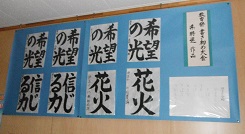 教育祭 書き初め大会
作品
希望
の光
希望
の光
希望
の光
希望
の光
花火
花火
信じ
る力
信じ
る力